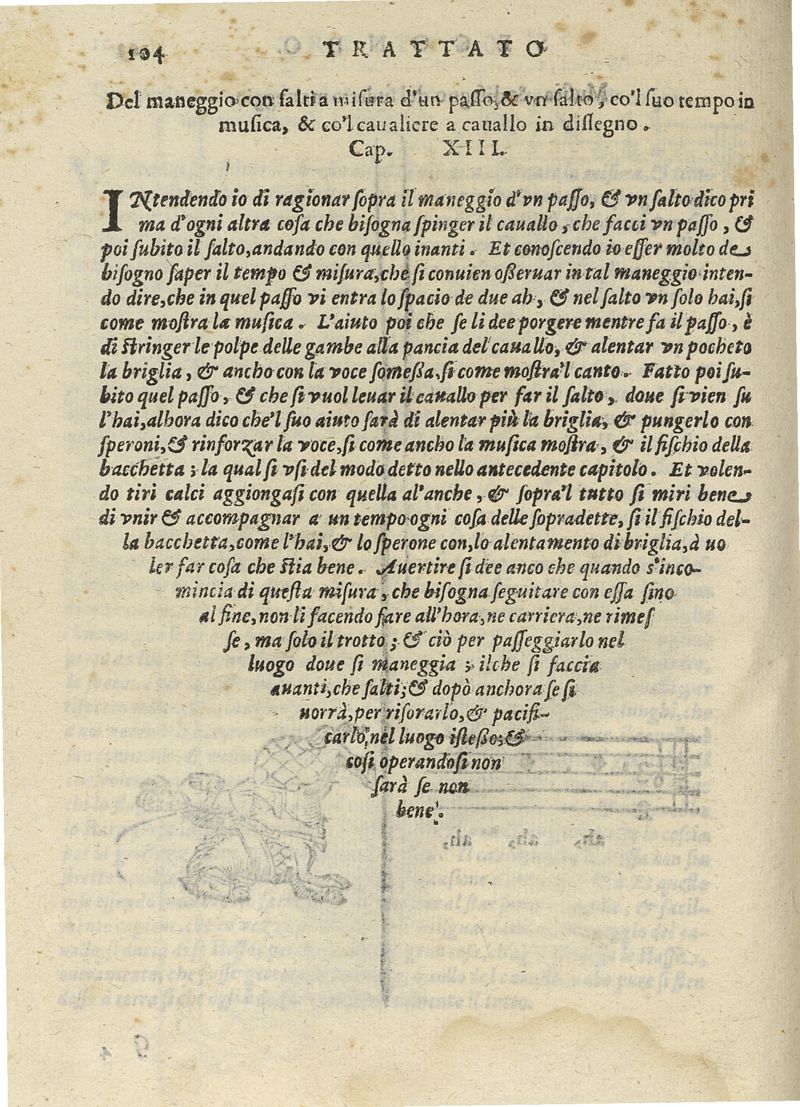 104 TRATTATO
Del maneggio con salti a misura d'un passo, & vn salto, co'l suo tempo in
musica, & co'l caualiere a cauallo in dissegno.
Cap. XIII.
INtendendo io di ragionar sopra il maneggio d'vn passo, & vn salto dico pri
ma d'ogni altra cosa che bisogna spinger il cauallo, che facci vn passo, &
poi subito il salto, andando con quello inanti. Et conoscendo io esser molto de
bisogno saper il tempo & misura, che si conuien osseruar in tal maneggio inten-
do dire, che in quel passo vi entra lo spacio de due ah, & nel salto vn solo hai, si
come mostra la musica. L'aiuto poi che se li dee porgere mentre fa il passo, è
di stringer le polpe delle gambe alla pancia del cauallo, & alentar vn pocheto
la briglia, & ancho con la voce somessa, si come mostra'l canto. Fatto poi su-
bito quel passo, & che si vuol leuar il cauallo per far il salto, doue si vien su
l'hai, alhora dico che'l suo aiuto sarà di alentar più la briglia, & pungerlo con
speroni, & rinforzar la voce, si come ancho la musica mostra, & il fischio della
bacchetta; la qual si vsi del modo detto nello antecedente capitolo. Et volen-
do tiri calci aggiongasi con quella al'anche, & sopra'l tutto si miri bene
di vnir & accompagnar a un tempo ogni cosa delle sopradette, si il fischio del-
la bacchetta, come l'hai, & lo sperone con, lo alentamento di briglia, à uo
ler far cosa che stia bene. Auertire si dee anco che quando s'inco-
mincia di questa misura, che bisogna seguitare con essa sino
al fine, non li facendo fare all'hora, ne carriera, ne rimes
se, ma solo il trotto; & ciò per passeggiarlo nel
luogo doue si maneggia; ilche si faccia
auanti, che salti; & dopò anchora se si
uorrà, per risorarlo, & pacifi-
carlo, nel luogo istesso; &
così operandosi non
sarà se non
bene.